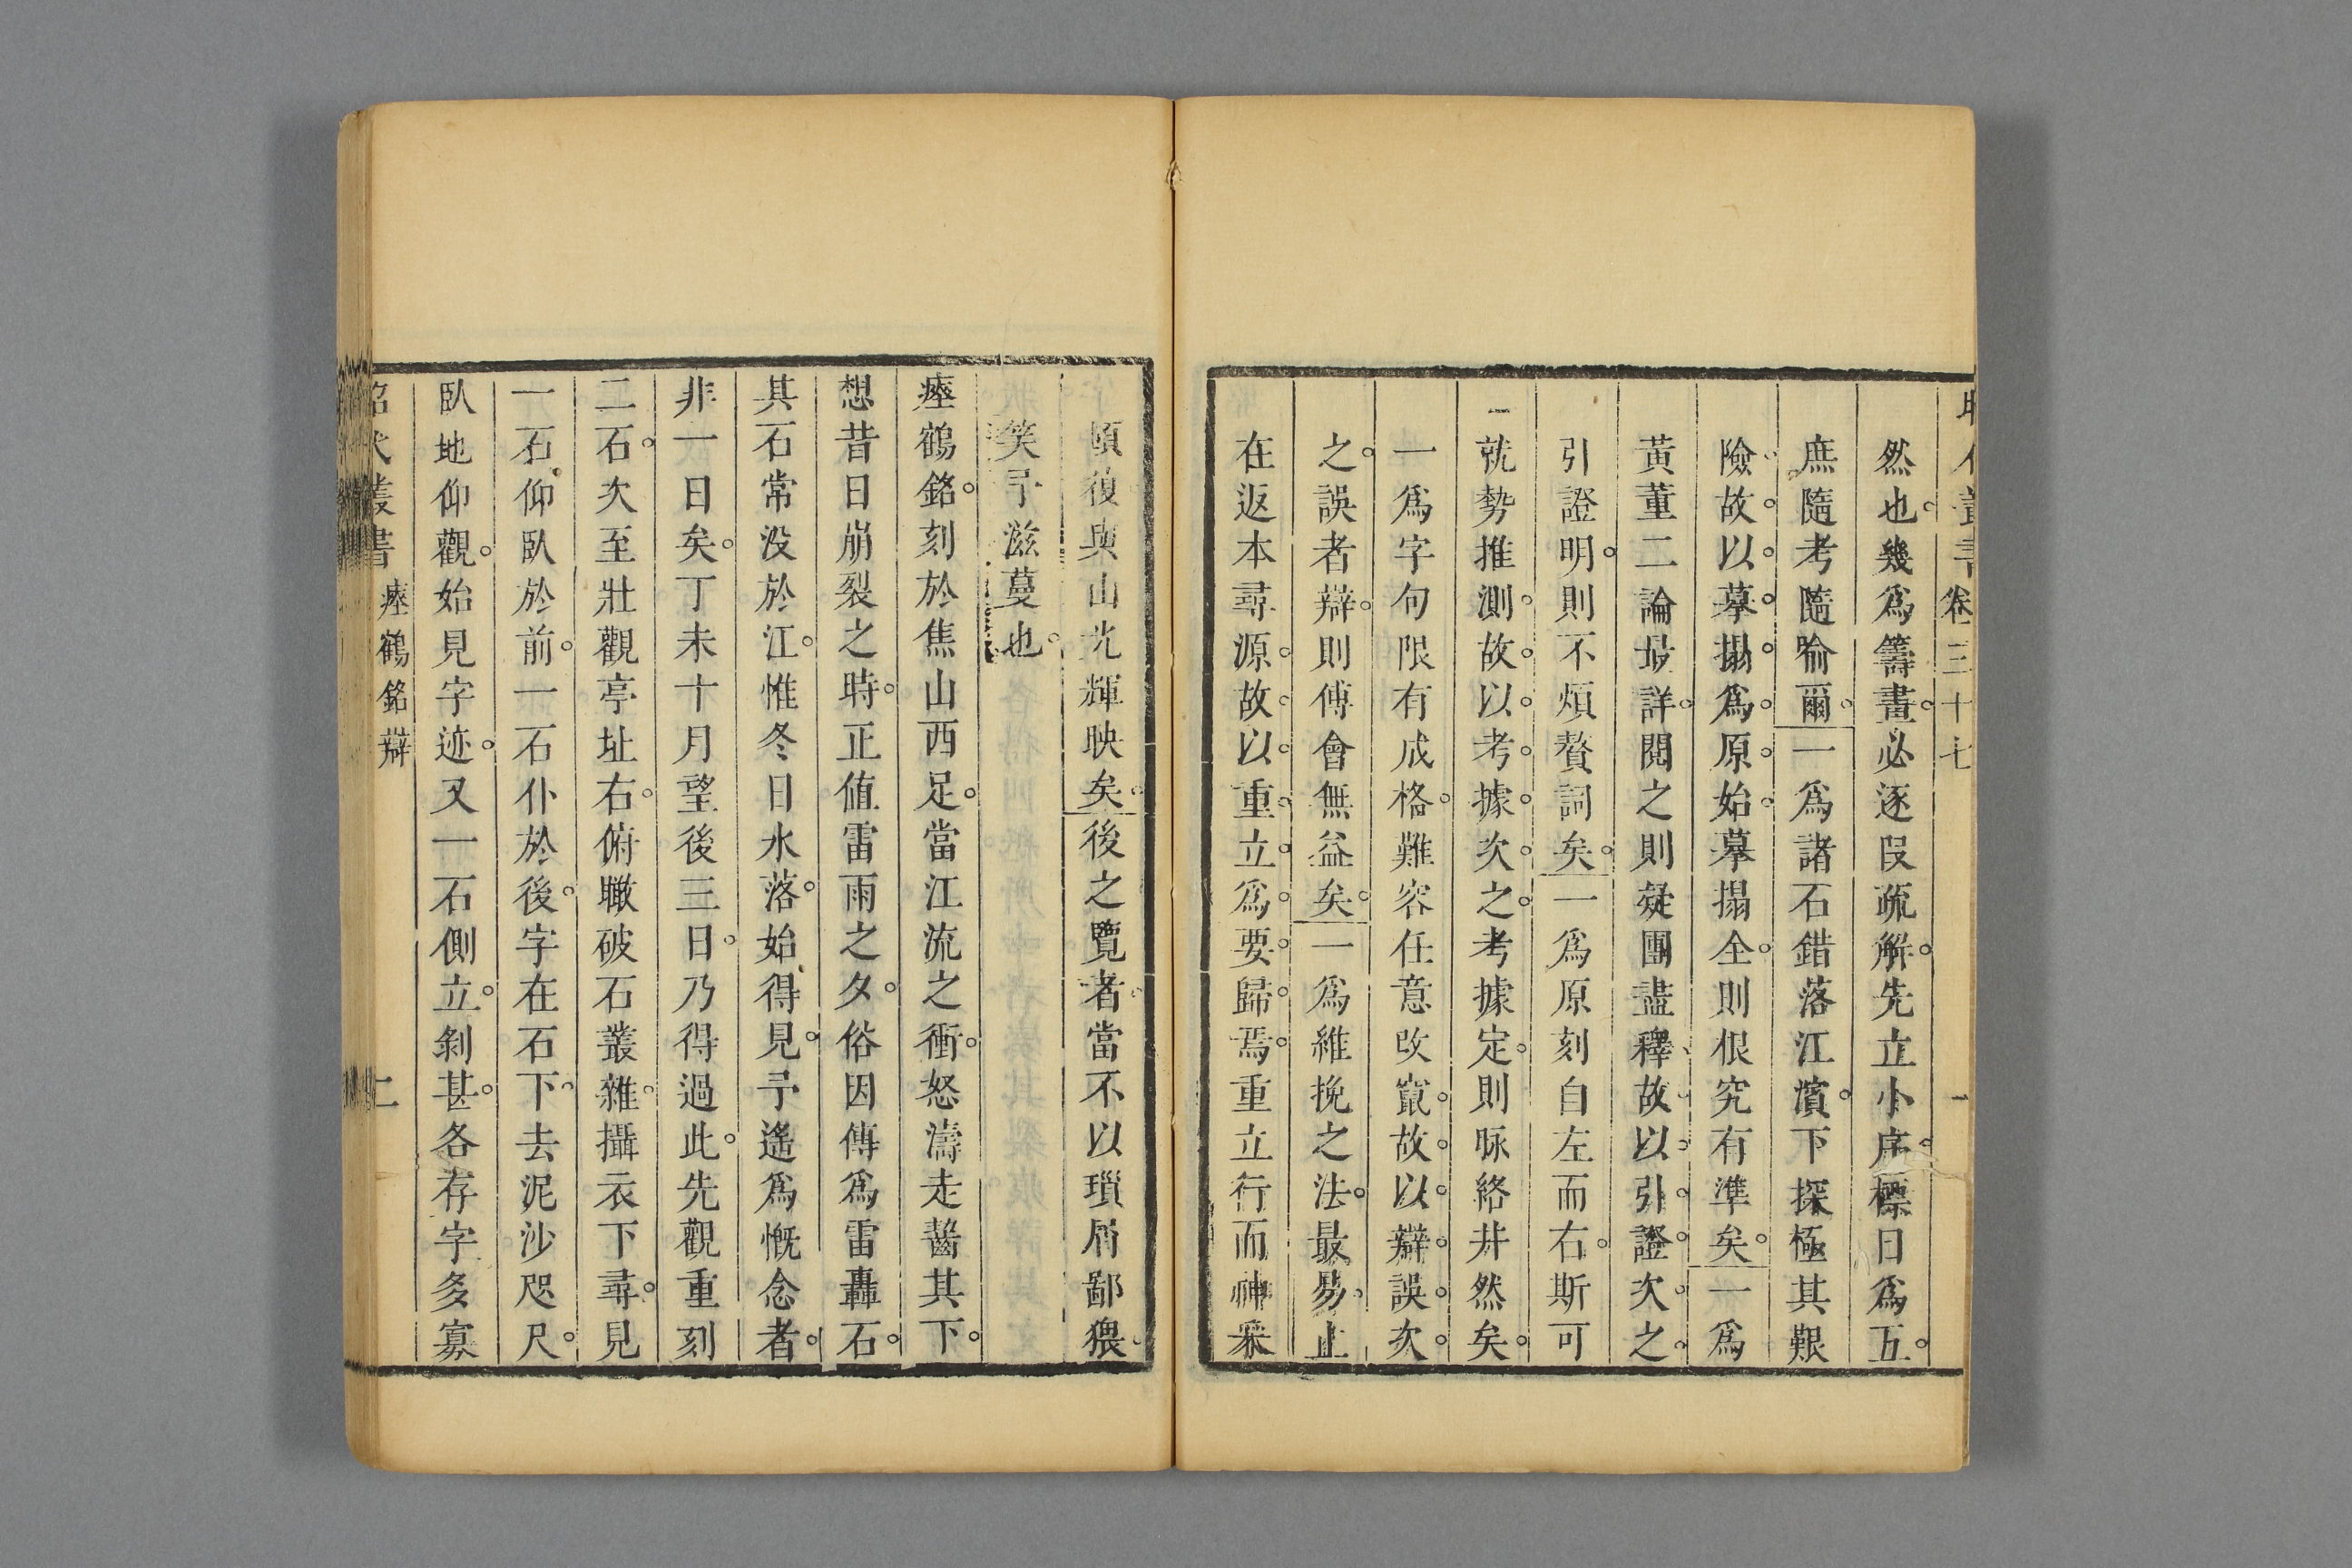 卷三十七
然也幾爲籌畫必逐叚疏解先立小序標曰爲五
庶隨考隨喻爾一爲諸石錯落江濱下探極其艱
險故以摹搨爲原始摹搨全則俍究有準矣一爲
黃董二論最詳閱之則疑團盡釋故以引證次之
引證明則不煩贅詞矣一爲原刻自左而右斯可
就勢推測故以考據次之考據定則脉絡井然矣
一爲字句限有成格難容任意改竄故以辯誤次
之誤者辯則傅會無益矣一爲維挽之法最易止
在返本尋源故以重立爲要歸焉重立行而神采
頓復與山光輝映矣後之覽者當不以瑣屑鄙猥
笑予滋蔓也
瘞鶴銘刻於焦山西足當江流之衝怒濤走齧其下
想昔日崩裂之時正値雷雨之夕俗因傳爲雷轟石
其石常沒於江惟冬日水落始得見予遙爲慨念者
非一日矣丁未十月望後三日乃得過此先觀重刻
二石次至壯觀亭址右俯瞰破石叢雜攝衣下尋見
一石仰臥於前一石仆於後字在石下去泥沙咫尺
臥地仰觀始見字迹又一石側立剝甚各存字多寡
瘞鶴銘辯
二